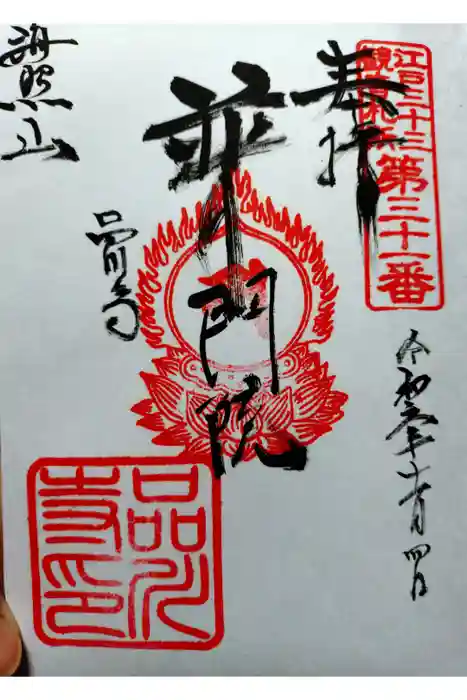 江戸三十三
観音札所
第三十一番
奉拝
令和
月四日
普門院
海照山
品川寺
品川
寺印